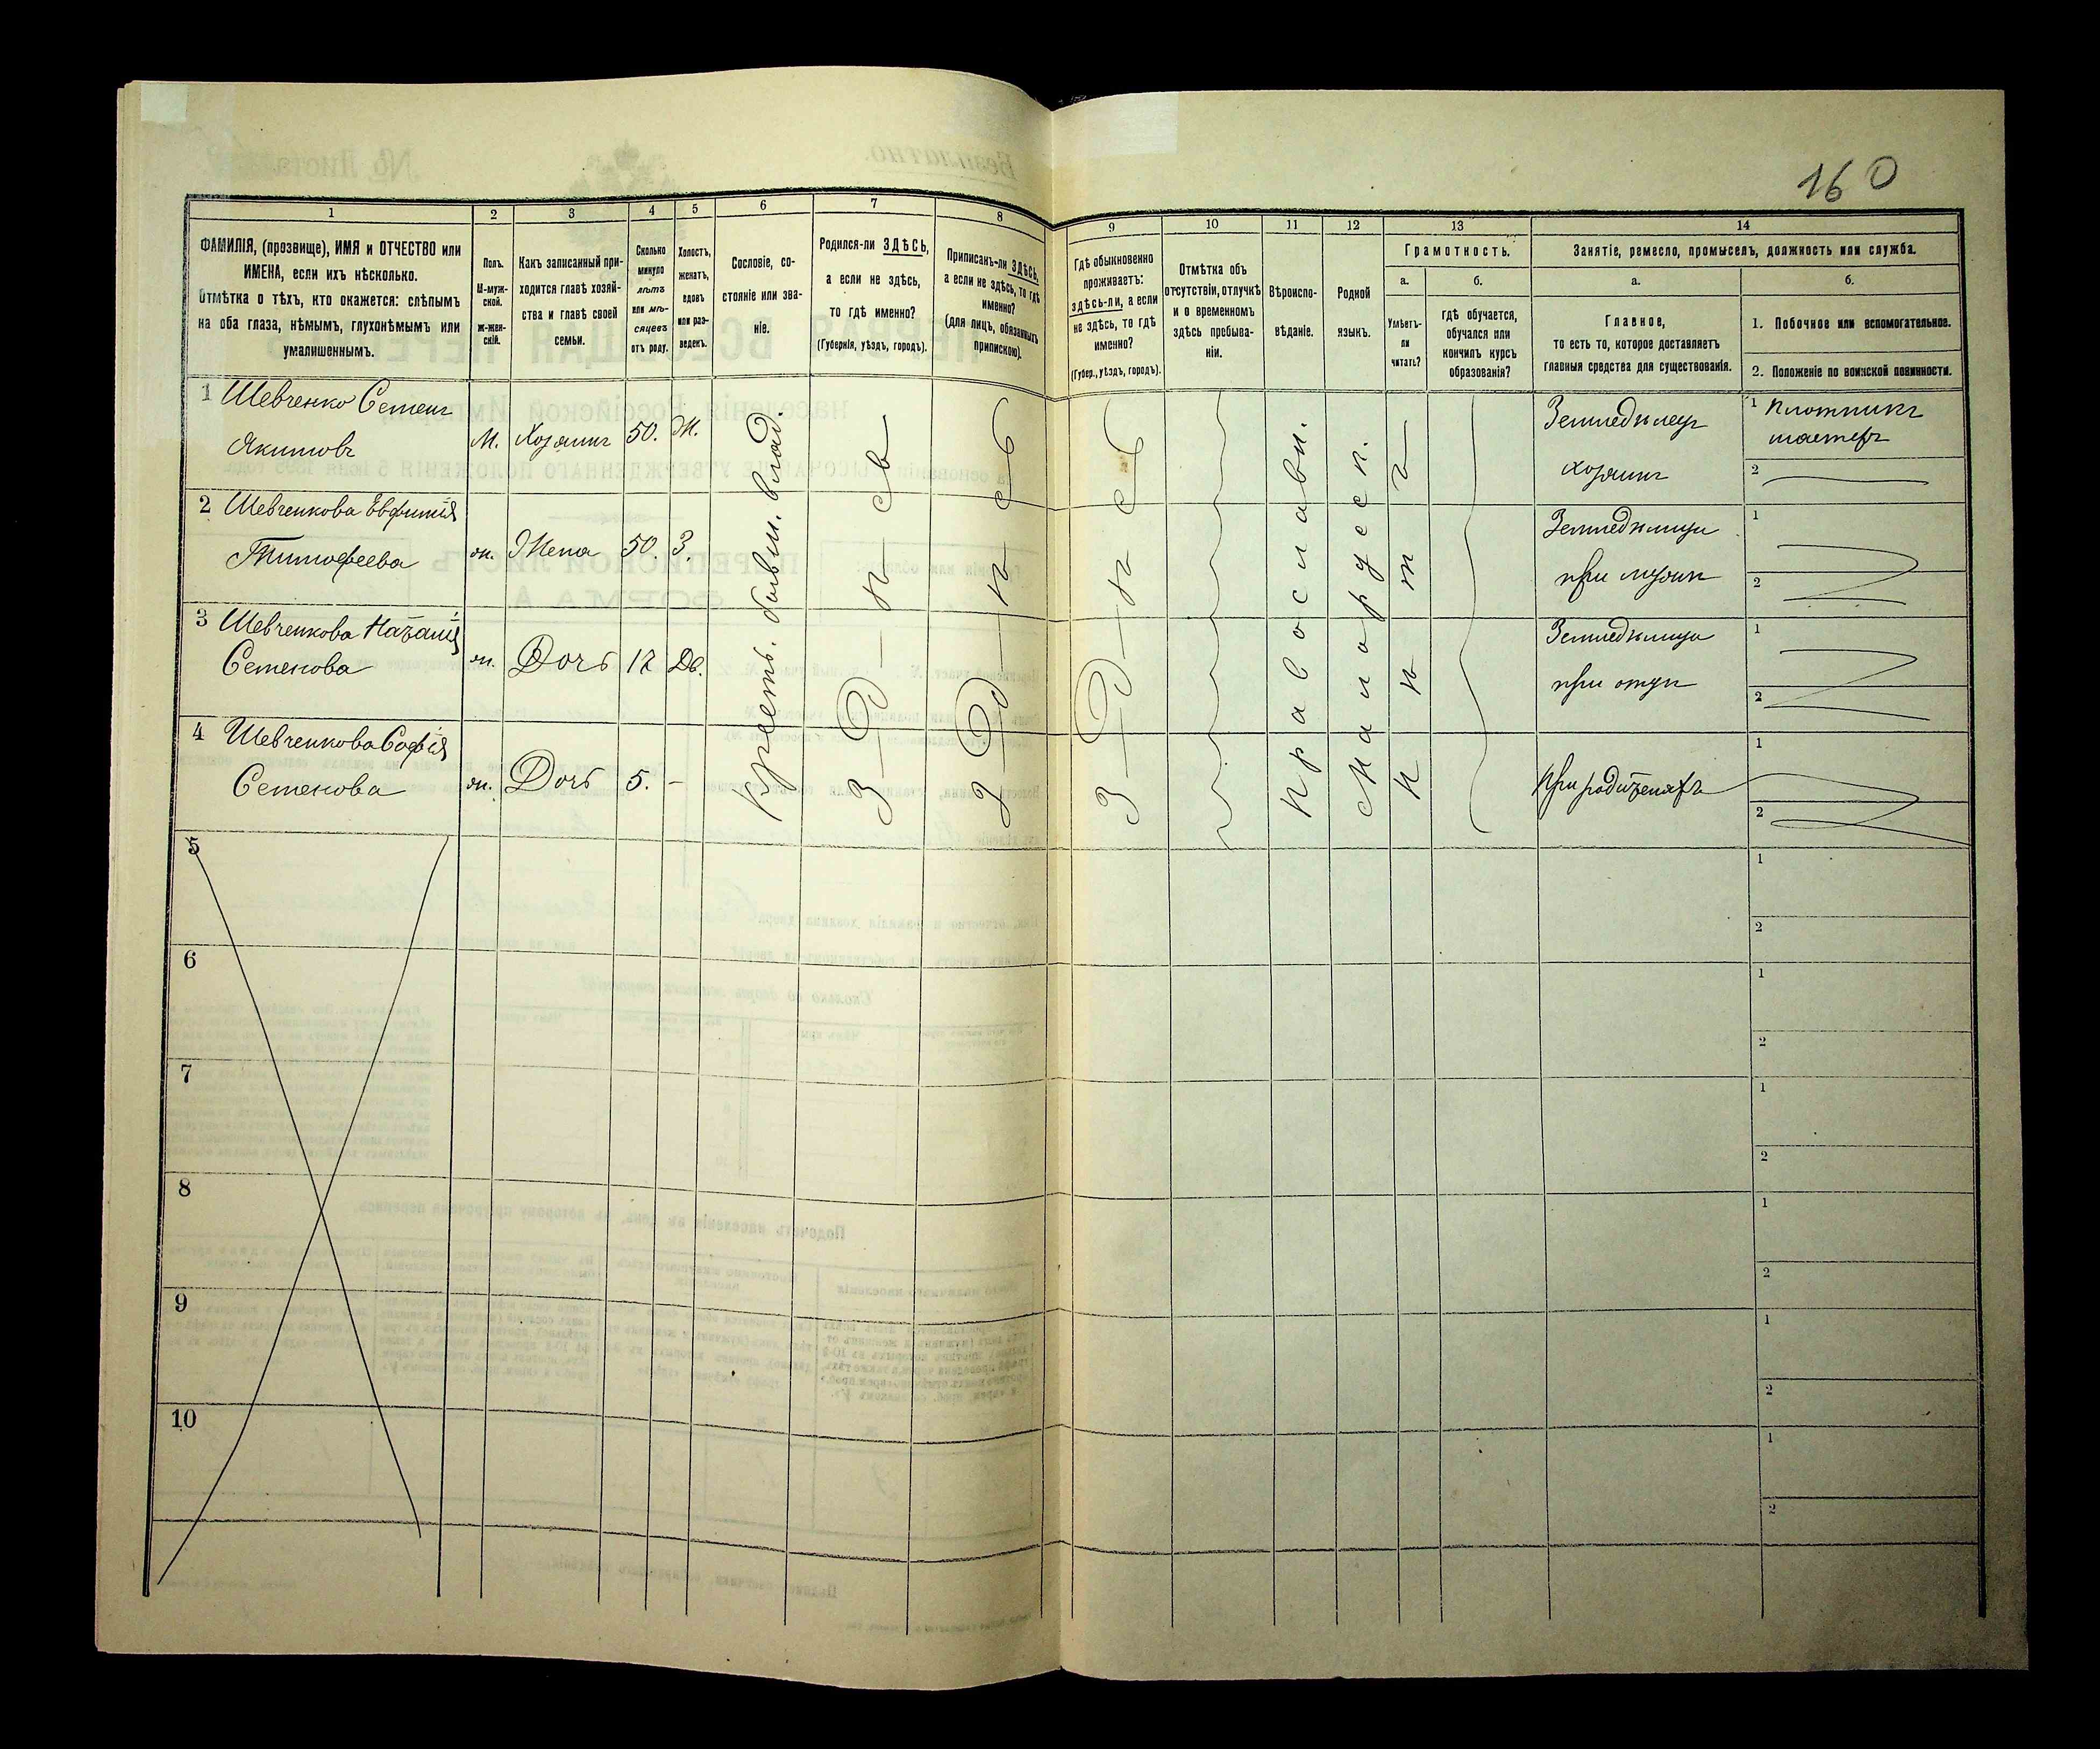 160
1
2
3
4
5
6
7
8
9
10
11
12
13
14
ФАМИЛІЯ, (прозвище), ИМЯ и ОТЧЕСТВО или
ИМЕНА, если ихъ нѣсколько.
Отмѣтка о тѣхъ, кто окажется: слѣпымъ
на оба глаза, нѣмымъ, глухонѣмымъ или
умалишеннымъ.
Полъ.
М-муж-
ской.
ж-жен-
скій.
Какъ записанный при-
ходится главѣ хозяй-
ства и главѣ своей
семьи.
Сколько
минуло
лѣтъ
или мѣ-
сяцевъ
отъ роду.
Холостъ,
женатъ,
вдовъ
или раз-
веденъ.
Сословіе, со-
стояніе или зва-
ніе.
Родился-ли ЗДѢСЬ,
а если не здѣсь,
то гдѣ именно?
(Губернія, уѣздъ, городъ).
Приписанъ-ли ЗДѢСЬ,
а если не здѣсь, то гдѣ
именно?
(для лицъ, обязанныхъ
припискою).
Гдѣ обыкновенно
проживаетъ:
здѣсь-ли, а если
не здѣсь, то гдѣ
именно?
(Губер., уѣздъ, городъ).
Отмѣтка объ
отсутствіи, отлучкѣ
и о временномъ
здѣсь пребыва-
ніи.
Вѣроиспо-
вѣданіе.
Родной
языкъ.
Грамотность.
а.
Умѣетъ-
ли
читать?
б.
гдѣ обучается,
обучался или
кончилъ курсъ
образованія?
Занятіе, ремесло, промыселъ, должность или служба.
а.
Главное,
то есть то, которое доставляетъ
главныя средства для существованія.
б.
1. Побочное или вспомогательное.
2. Положеніе по воинской повинности.
1 Шевченко Семенъ
Якимовъ
М. Хозяинъ 50. Ж.
Земледѣлецъ
хозяинъ
1 Плотникъ
мастеръ
2
2 Шевченкова Евфимія
Тимофеева
ж. Жена 50. З.
Земледѣлица
при мужѣ
1
2
3 Шевченкова Наталія
Семенова
ж. Дочь 12 Дв.
Земледѣлица
при отцѣ
1
2
4 Шевченкова Софія
Семенова
ж. Дочь 5. –
При родителяхъ
1
2
Крестъ. бывш. влад.
З д ѣ с ь
З д ѣ с ь
З д ѣ с ь
Православн.
Малорусск.
н ѣ т ъ
5
1
2
6
1
2
7
1
2
8
1
2
9
1
2
10
1
2